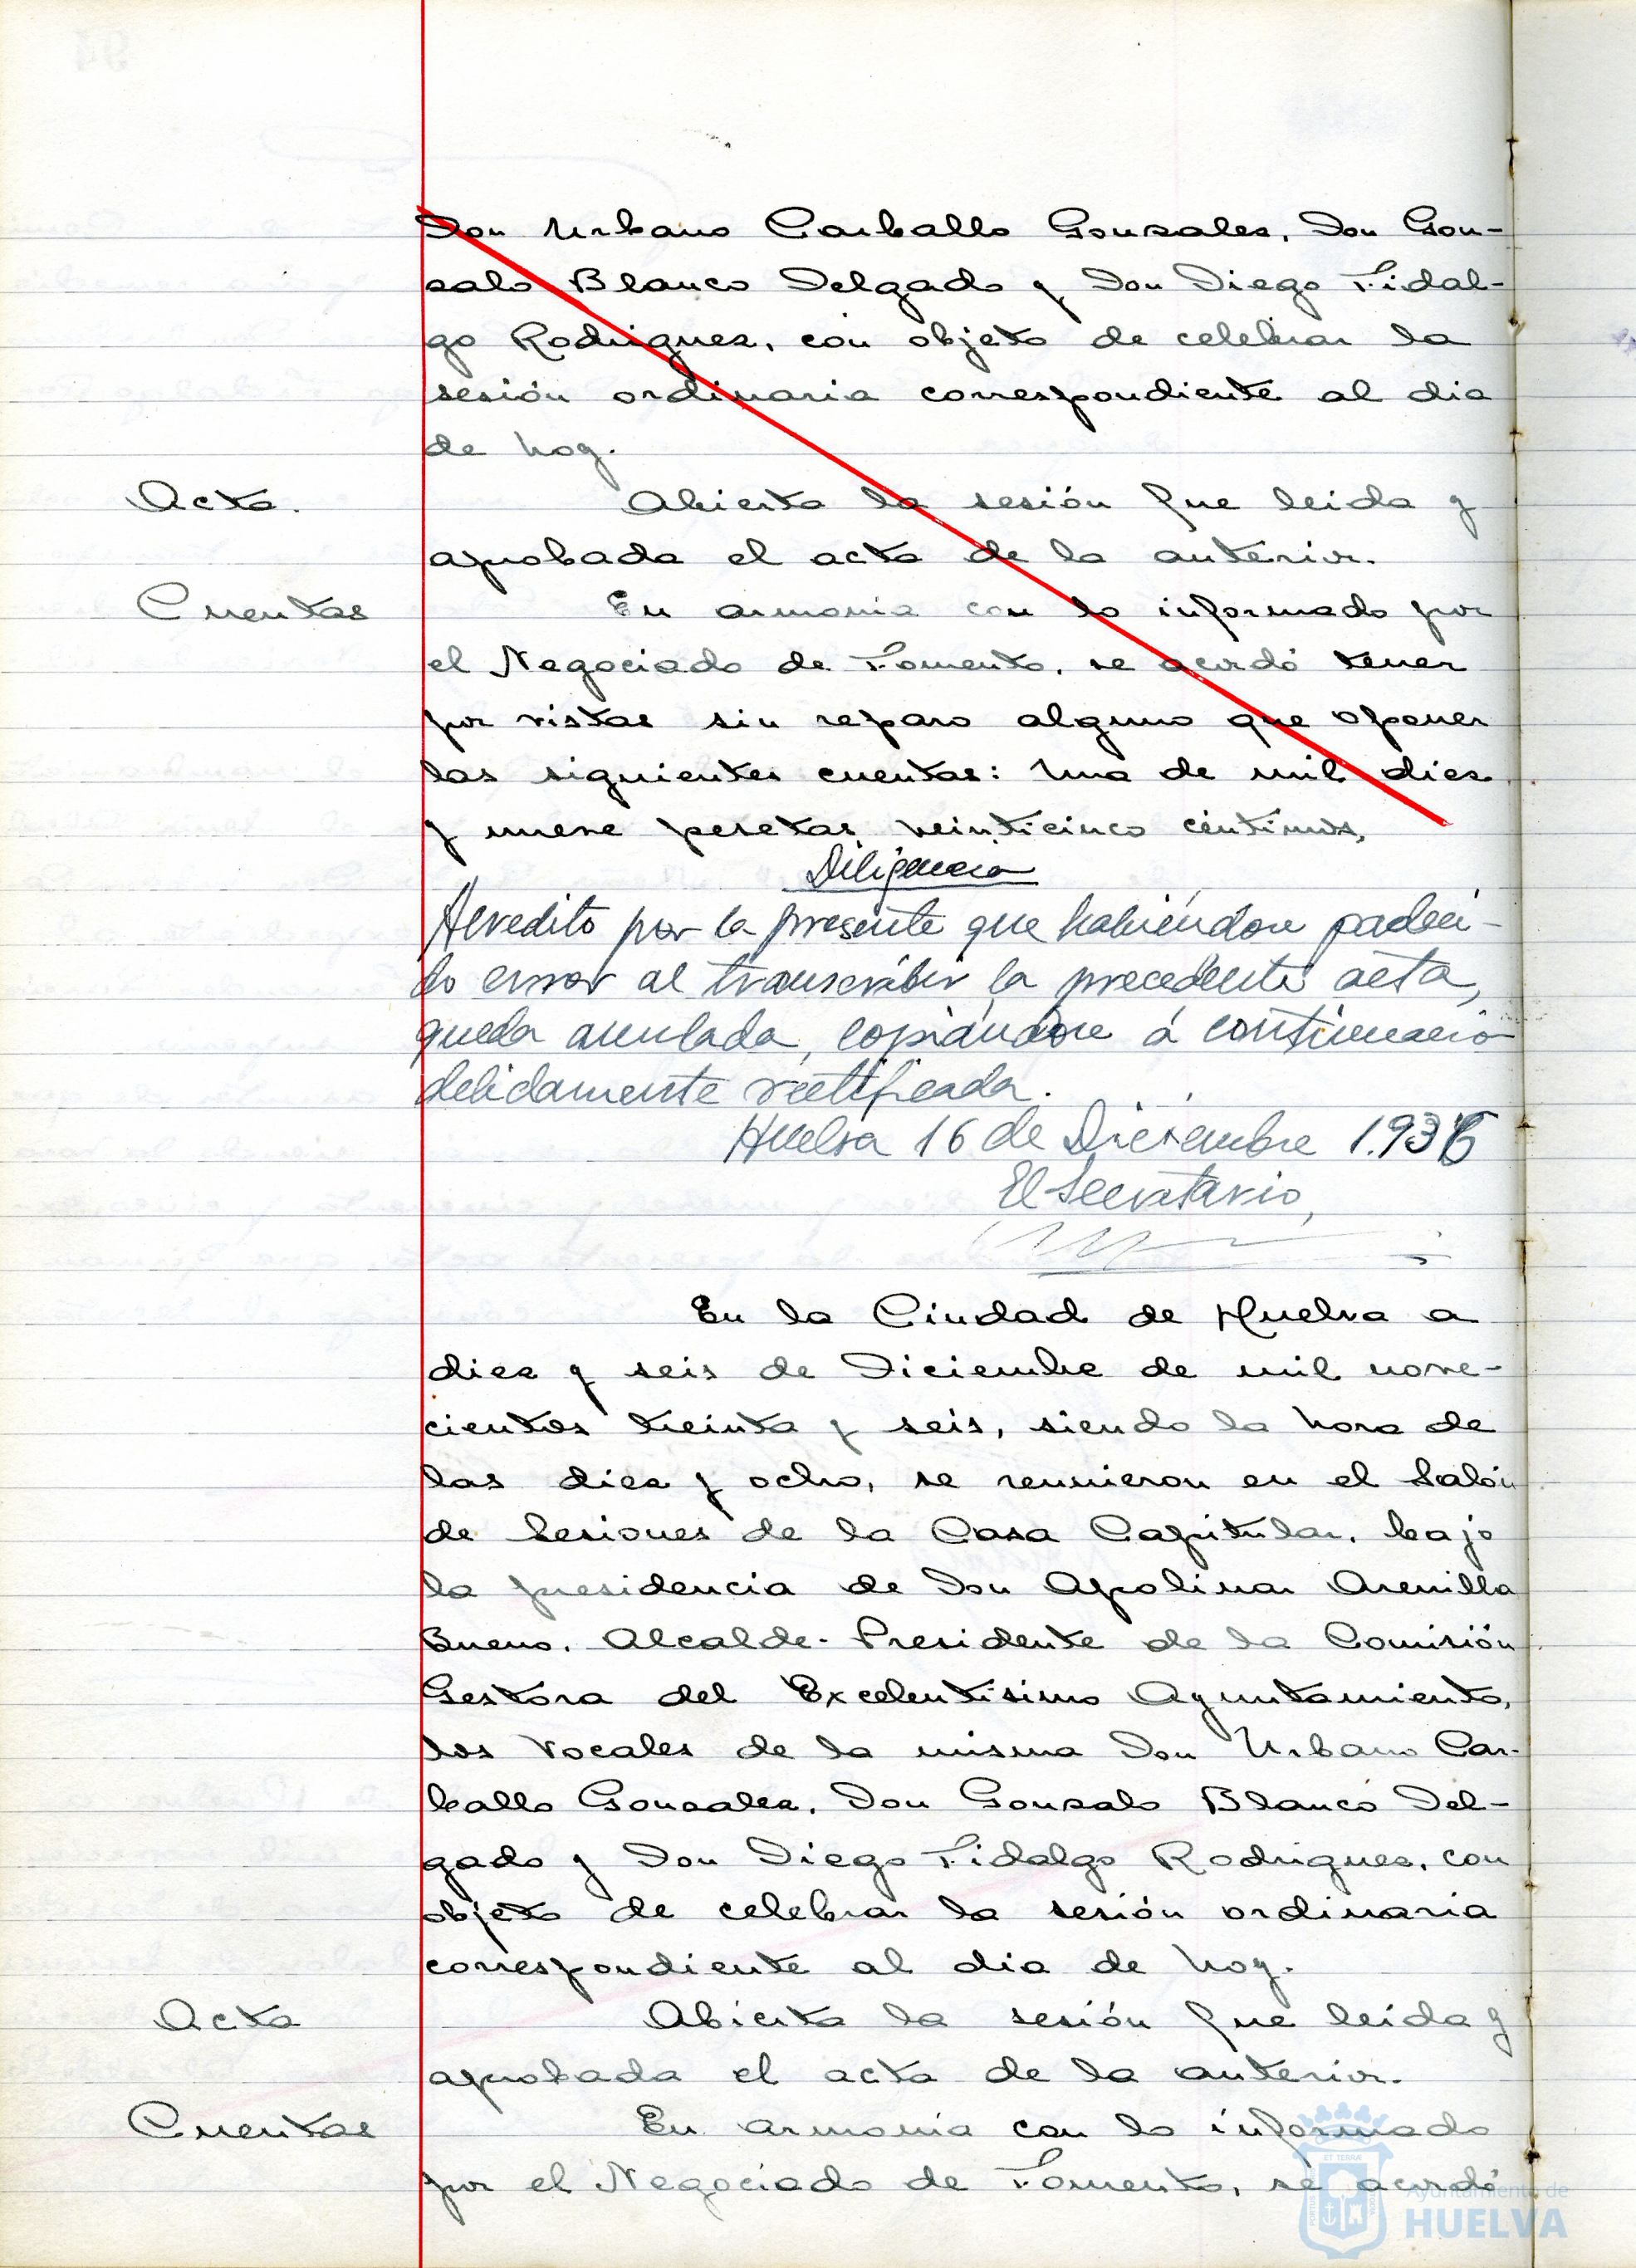 Don Urbano Carballo Gonzalez, Don Gon-
zalo Blanco Delgado y Don Diego Fidal-
go Rodriguez, con objeto de celebrar la
sesión ordinaria correspondiente al dia
de hoy.
Acta.
Abierta la sesión fue leida y
aprobada el acta de la anterior.
Cuentas
En armonia con lo informado por
el Negociado de Fomento, se acordó tener
por vistas sin reparo alguno que oponer
las siguientes cuentas: Una de mil diez
y nueve pesetas veinticinco céntimos,
Diligencia
Acredito por la presente que habiéndose padeci-
do error al transcribir la precedente acta,
queda anulada, copiándose á continuació
debidamente rectificada.
Huelva 16 de Diciembre 1.936
El Secretario,
En la Ciudad de Huelva a
diez y seis de Diciembre de mil nove-
cientos treinta y seis, siendo la hora de
las diez y ocho, se reunieron en el Salón
de Sesiones de la Casa Capitular, bajo
la presidencia de Don Apolinar Arenilla
Bueno, Alcalde-Presidente de la Comisión
Gestora del Excelentisimo Ayuntamiento,
los Vocales de la misma Don Urbano Car-
ballo Gonzalez, Don Gonzalo Blanco Del-
gado y Don Diego Fidalgo Rodriguez, con
objeto de celebrar la sesión ordinaria
correspondiente al dia de hoy.
Acta
Abierta la sesión fue leida y
aprobada el acta de la anterior.
Cuentas
En armonia con lo informado
por el Negociado de Fomento, se acordó
Ayuntamiento de
HUELVA